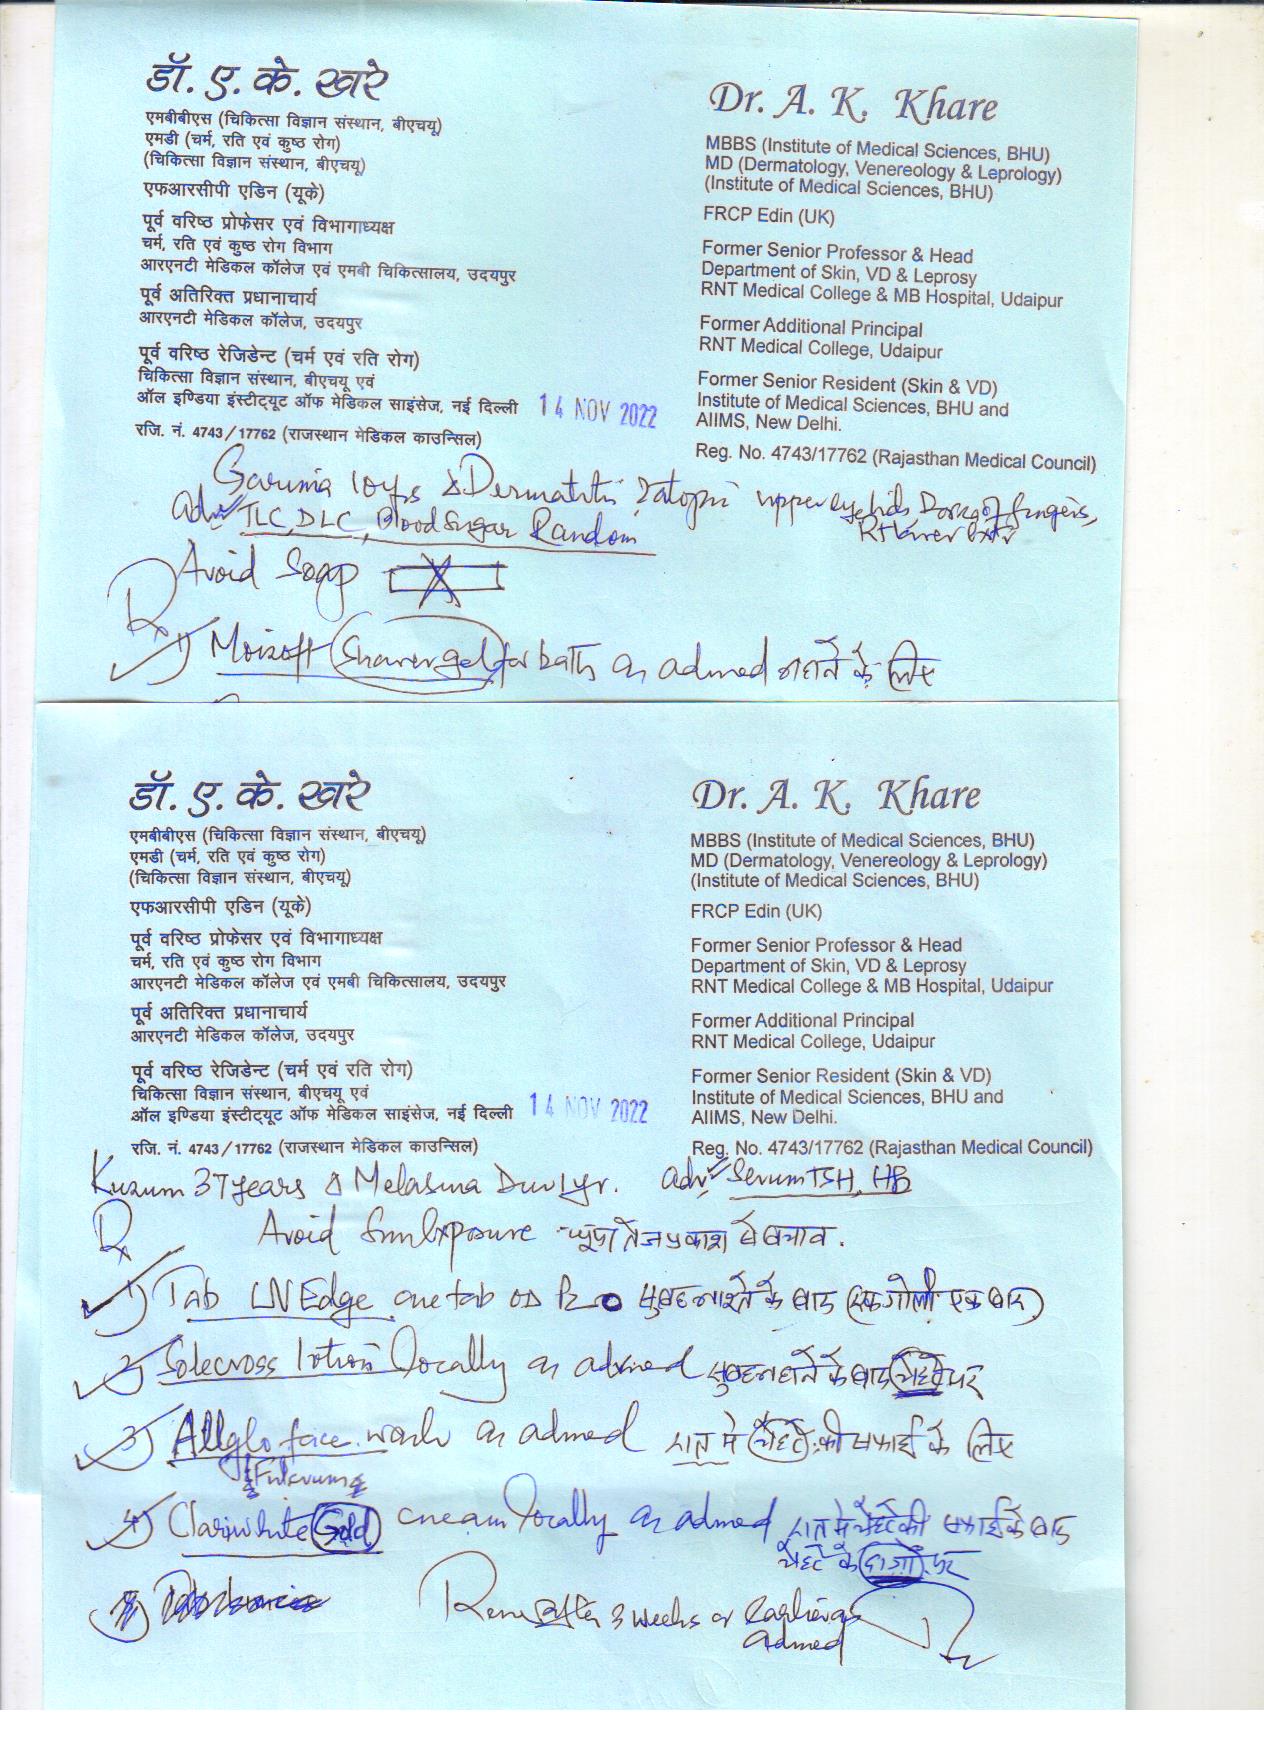 डॉ. ए. के. खरे
एमबीबीएस (चिकित्सा विज्ञान संस्थान, बीएचयू)
एमडी (चर्म, रति एवं कुष्ठ रोग)
(चिकित्सा विज्ञान संस्थान, बीएचयू)
एफआरसीपी एडिन (यूके)
पूर्व वरिष्ठ प्रोफेसर एवं विभागाध्यक्ष
चर्म, रति एवं कुष्ठ रोग विभाग
आरएनटी मेडिकल कॉलेज एवं एमबी चिकित्सालय, उदयपुर
पूर्व अतिरिक्त प्रधानाचार्य
आरएनटी मेडिकल कॉलेज, उदयपुर
पूर्व वरिष्ठ रेजिडेन्ट (चर्म एवं रति रोग)
चिकित्सा विज्ञान संस्थान, बीएचयू एवं
ऑल इण्डिया इंस्टीट्यूट ऑफ मेडिकल साइंसेज, नई दिल्ली
रजि. नं. 4743/17762 (राजस्थान मेडिकल काउन्सिल)
14 NOV 2022
Dr. A. K. Khare
MBBS (Institute of Medical Sciences, BHU)
MD (Dermatology, Venereology & Leprology)
(Institute of Medical Sciences, BHU)
FRCP Edin (UK)
Former Senior Professor & Head
Department of Skin, VD & Leprosy
RNT Medical College & MB Hospital, Udaipur
Former Additional Principal
RNT Medical College, Udaipur
Former Senior Resident (Skin & VD)
Institute of Medical Sciences, BHU and
AIIMS, New Delhi.
Reg. No. 4743/17762 (Rajasthan Medical Council)
10 yrs Δ Dermatitis ? atopic upper eyelids Dorsa of fingers,
Adv TLC, DLC, Blood Sugar Random
Avoid Soap
Rx
1) Moizoft Shower gel for bath as advised नहाने के लिए
डॉ. ए. के. खरे
एमबीबीएस (चिकित्सा विज्ञान संस्थान, बीएचयू)
एमडी (चर्म, रति एवं कुष्ठ रोग)
(चिकित्सा विज्ञान संस्थान, बीएचयू)
एफआरसीपी एडिन (यूके)
पूर्व वरिष्ठ प्रोफेसर एवं विभागाध्यक्ष
चर्म, रति एवं कुष्ठ रोग विभाग
आरएनटी मेडिकल कॉलेज एवं एमबी चिकित्सालय, उदयपुर
पूर्व अतिरिक्त प्रधानाचार्य
आरएनटी मेडिकल कॉलेज, उदयपुर
पूर्व वरिष्ठ रेजिडेन्ट (चर्म एवं रति रोग)
चिकित्सा विज्ञान संस्थान, बीएचयू एवं
ऑल इण्डिया इंस्टीट्यूट ऑफ मेडिकल साइंसेज, नई दिल्ली
रजि. नं. 4743/17762 (राजस्थान मेडिकल काउन्सिल)
14 NOV 2022
Dr. A. K. Khare
MBBS (Institute of Medical Sciences, BHU)
MD (Dermatology, Venereology & Leprology)
(Institute of Medical Sciences, BHU)
FRCP Edin (UK)
Former Senior Professor & Head
Department of Skin, VD & Leprosy
RNT Medical College & MB Hospital, Udaipur
Former Additional Principal
RNT Medical College, Udaipur
Former Senior Resident (Skin & VD)
Institute of Medical Sciences, BHU and
AIIMS, New Delhi.
Reg. No. 4743/17762 (Rajasthan Medical Council)
Kusum 37 years Δ Melasma Dur 1 yr. Adv. Serum TSH, HB
Rx Avoid Sun Exposure धूप तेज प्रकाश से बचाव.
1) Tab LN Edge one tab OD सुबह नाश्ते के बाद (एक गोली एक बार)
2) Solecross lotion locally as advised सुबह नहाने के बाद चेहरे पर
3) Allglo face wash as advised रात में चेहरे की सफाई के लिए
4) Clariwhite Gold cream locally as advised रात में चेहरे की सफाई के बाद
चेहरे के दागों पर
after 3 weeks or Earlier as
advised